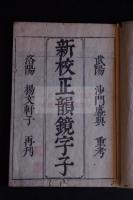 武陽 沙門盛典 重考
新校正韻鏡字子
洛陽 揚文軒子 再刋